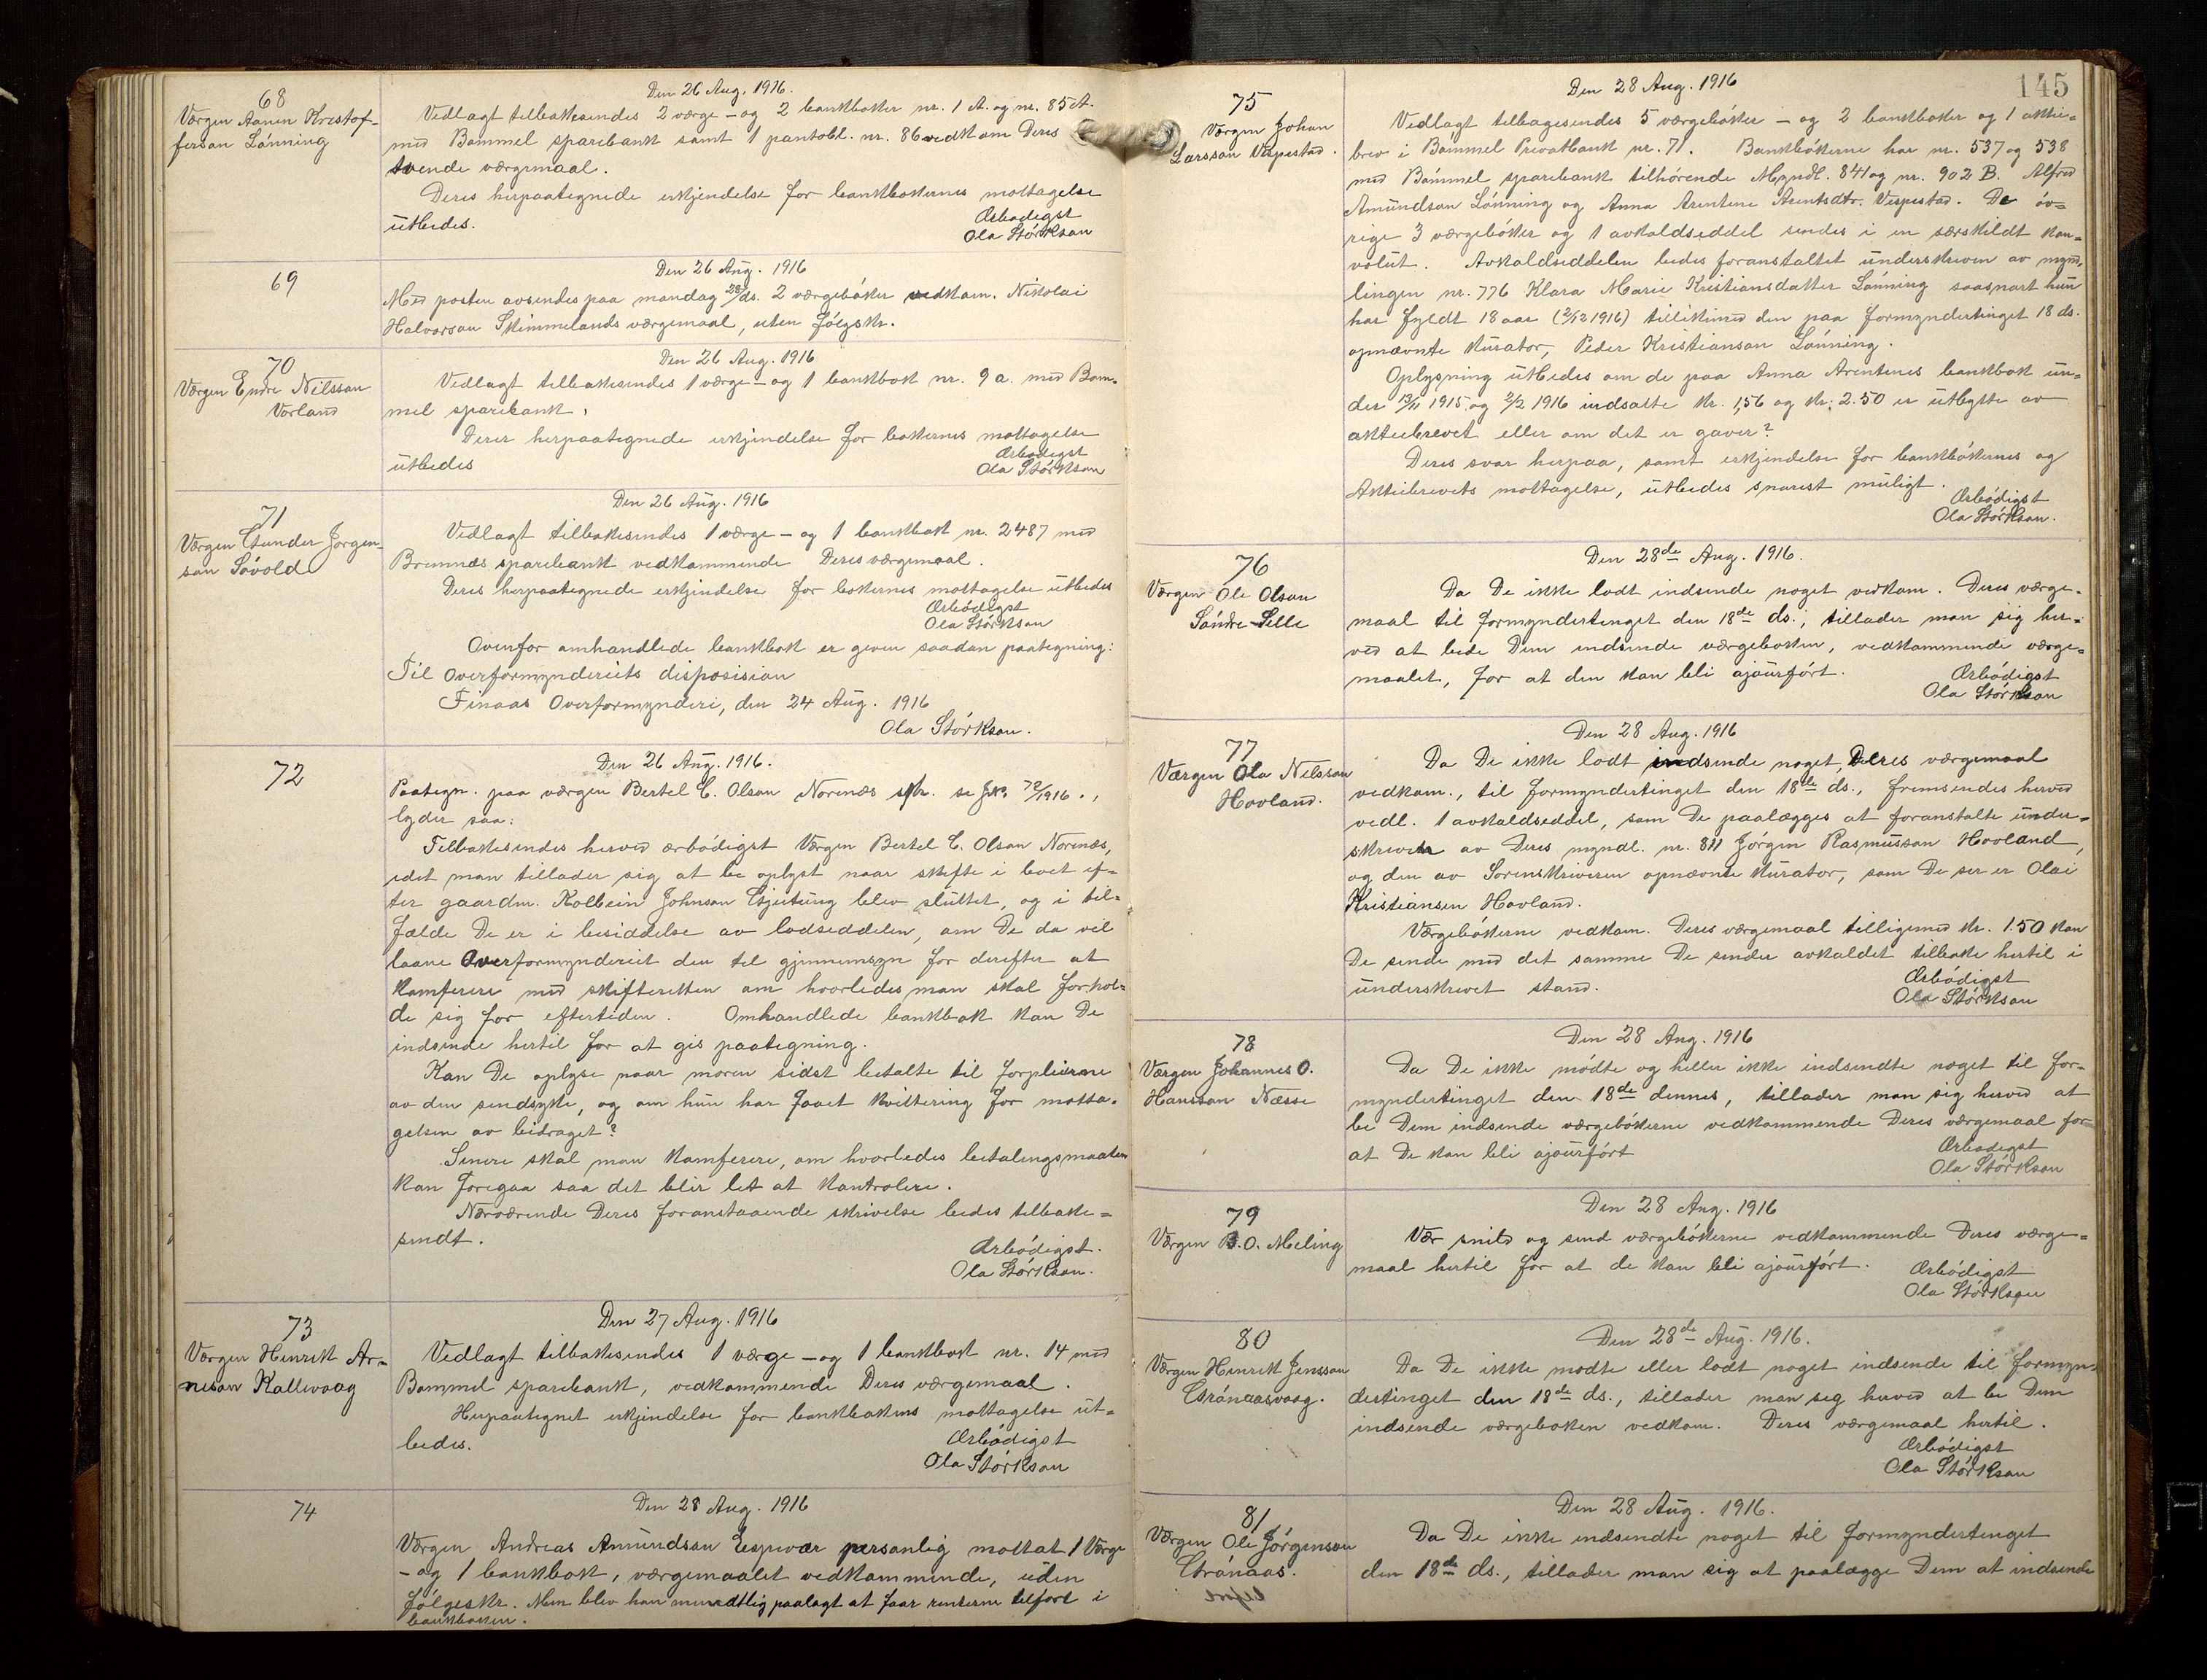 68
Værgen Aanen Kristof-
fersan Lönning
Den 26 Aug. 1916.
Vedlagt tilbakesendes 2 værge - og 2 bankboker nr. 1 A. og nr. 85 A.
med Bømmel sparebank samt 1 pantobl. nr. 86 vedkom Deres
tvende værgemaal.
Deres herpaategnede erkjendelse for bankbokernes mottagelse
ütbedes.
Ærbödigst
Ola Störksan
69
Den 26 Aug. 1916
Med posten avsendes paa mandag 28/ds. 2 værgebóker vedkom. Nikolai
Halvorsan Skimmelands værgemaal, uten fólgskr.
70
Værgen Endre Nilssan
Vorland
Den 26 Aug. 1916
Vedlagt tilbakesendes 1 værge - og 1 bankbok nr. 9 a. med Bøm-
mel sparebank.
Deres herpaategnede erkjendelse for bokernes mottagelse
ütbedes
Ærbödigst
Ola Störksan
71
Værgen Gunder Jørgen-
san Sóvold
Den 26 Aüg. 1916
Vedlagt tilbakesendes 1 værge - og 1 bankbok nr. 2487 med
Bremnæs sparebank vedkommende Deres værgemaal.
Deres herpaategnede erkjendelse for bokernes mottagelse ütbedes
Ærbödigst
Ola Störksan
Ovenfor omhandlede bankbok er given saadan paategning:
Til Overformynderiets disposision
Finaas Overformynderi, den 24 Aug. 1916
Ola Störksan.
72
Den 26 Aüg. 1916.
Paategn. paa værgen Bertel C. Olsan Norenæs skr. se Jnr. 72/1916.,
lyder saa:
Tilbakesendes herved ærbödigst Værgen Bertel C. Olsan Norenæs,
idet man tillader sig at be oplyst naar skifte i boet ef=
ter gaardm. Kolbein Johnsan Gjeitüng blev slüttet, og i til=
fælde De er i besiddelse av lodseddelen, om De da vil
laane Overformynderiet den til gjennemsyn for derefter at
kamferere med skifteretten om hvorledes man skal forhol=
de sig for eftertiden. Omhandlede bankbok kan De
indsende hertil for at gis paategning.
Kan De oplyse naar moren sidst betalte til forpleierne
av den sindsyke, og om hün har faaet kvittering for motta-
gelsen av bidraget?
Senere skal man kamferere, om hvorledes betalingsmaaten
kan foregaa saa det blir let at kantrolere.
Nærværende Deres foranstaaende skrivelse bedes tilbake=
sendt.
Ærbödigst.
Ola Störksan.
73
Værgen Henrik Ar-
nesan Kallevaag
Den 27 Aug. 1916
Vedlagt tilbakesendes 1 værge - og 1 bankbok nr. 14 med
Bømmel sparebank, vedkommende Deres værgemaal.
Herpaategnet erkjendelse for bankbokens mottagelse üt=
bedes.
Ærbödigst
Ola Störksan
74
Den 28 Aug. 1916
Værgen Andreas Amündsan Espevær persanlig mottat 1 Værge
- og 1 bankbok, værgemaalet vedkammende, üden
fólgeskr. Men blev han mundtlig paalagt at faar renterne tilfört i
bankboken.
145
75
Værgen Johan
Larssan Vespestad.
Den 28 Aug. 1916
Vedlagt tilbagesendes 5 værgebóker - og 2 bankboker og 1 aktie-
brev i Bømmel Privatbank nr. 71. Bankbókerne har nr. 537 og 538
med Bømmel sparebank tilhórende Myndl. 841 og nr. 902 B. Alfred
Amündsan Lönning og Anna Arentine Arentsdtr. Vespestad. De öv=
rige 3 værgebóker og 1 avkaldseddel sendes i en særskildt kan=
volüt. Avkaldseddelen bedes foranstaltet ünderskreven av mynd-
lingen nr. 776 Klara Marie Kristiansdatter Lönning saasnart hün
har fyldt 18 aar (2/12 1916) tillikemed den paa formyndertinget 18 ds.
opnævnte kürator, Peder Kristiansan Lönning.
Oplysning ütbedes om de paa Anna Arentines bankbok ün=
der 13/11 1915 og 2/2 1916 indsatte kr. 1,56 og kr. 2.50 er ütbytte av
aktiebrevet eller om det er gaver?
Deres svar herpaa, samt erkjendelse for bankbókernes og
Aktiebrevets mottagelse, ütbedes snarest müligt.
Ærbödigst
Ola Störksan.
76
Værgen Ole Olsan
Söndre-Selle
Den 28de Aug. 1916.
Da De ikke lodt indsende noget vedkom. Deres værge-
maal til formyndertinget den 18de ds., tillader man sig her-
ved at bede Dem indsende værgeboken, vedkammende værge=
maalet, for at den kan bli ajoürfört.
Ærbödigst
Ola Störksan
77
Værgen Ola Nilssan
Hovland.
Den 28 Aug. 1916
Da De ikke lodt indsende noget, Deres værgemaal
vedkom., til formyndertinget den 18de ds., fremsendes herved
vedl. 1 avkaldseddel, som De paalægges at foranstalte ünder=
skreven av Deres myndl. nr. 811 Jörgen Rasmüssan Hovland,
og den av Sorenskriveren opnævnte kürator, som De ser er Olai
Kristiansen Hovland.
Værgebókerne vedkom. Deres værgemaal tilligemed kr. 1.50 kan
De sende med det samme De sender avkaldet tilbake hertil i
ünderskrevet stand.
Ærbödigst
Ola Störksan
78
Værgen Johannes O.
Hanssan Næsse
Den 28 Aug. 1916
Da De ikke mödte og heller ikke indsendte noget til for-
myndertinget den 18de dennes, tillader man sig herved at
be Dem indsende værgebókerne vedkommende Deres værgemaal for
at De kan bli ajoürfört
Ærbödigst
Ola Störksan
79
Værgen B.O. Meling
Den 28 Aug. 1916
Vær snild og send værgebókerne vedkommende Deres værge=
maal hertil for at de kan bli ajoürfört.
Ærbödigst
Ola Störksan
80
Værgen Henrik Jenssan
Grönaasvaag.
Den 28de Aüg. 1916.
Da De ikke mödte eller lodt noget indsende til formyn-
dertinget den 18de ds., tillader man sig herved at be Dem
indsende værgeboken vedkom. Deres værgemaal hertil.
Ærbödigst
Ola Störksan
81
Værgen Ole Jörgensan
Grönaas.
Den 28 Aüg. 1916.
Da De ikke indsendte noget til formyndertinget
den 18de ds., tillader man sig at paalægge Dem at indsende